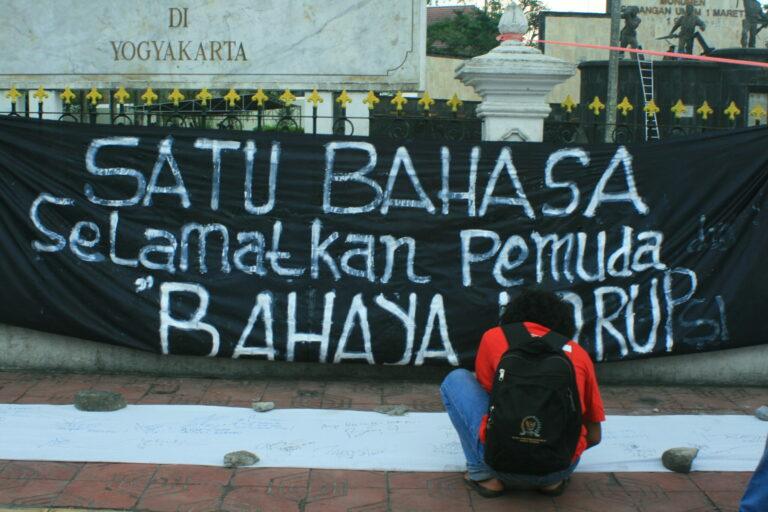 DI
YOGYAKARTA
MONUMEN
SERANGAN UMUM 1 MARET
SATU BAHASA
Selamatkan Pemuda dari
"BAHAYA KORUPSI